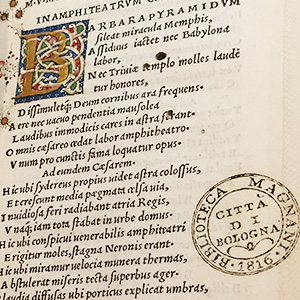 IN AMPHITEATRVM C
BARBARA PYRAMIDVM
sileat miracula Memphis,
Assiduus iactet nec Babylona
labor,
Nec Triuiæ templo molles laudẽ
tur honores,
Dissimuletq; Deum cornibus ara frequens.
Aere nec uacuo pendentia mausolea
Laudibus immodicis cares in astra ferant.
Omnis cæsareo cædat labor amphitheatro.
Vnum pro cunctis fama loquatur opus.
Ad eundem Cæsarem.
Hic ubi sydereus propius uidet astra colossus,
Et crescunt media pægmata celsa uia,
Inuidiosa feri radiabant atria Regis,
Vnaq; iam tota stabat in urbe domus
Hic ubi conspicui uenerabilis amphitatri
Erigitur moles, stagna Neronis erant.
Hic ubi miramur uelocia munera thermas,
Abstulerat miseris tecta superbus ager.
Claudia diffusas ubi porticus explicat umbras,
BIBLIOTECA MAGNANI
CITTÀ
DI
BOLOGNA
· 1816 ·